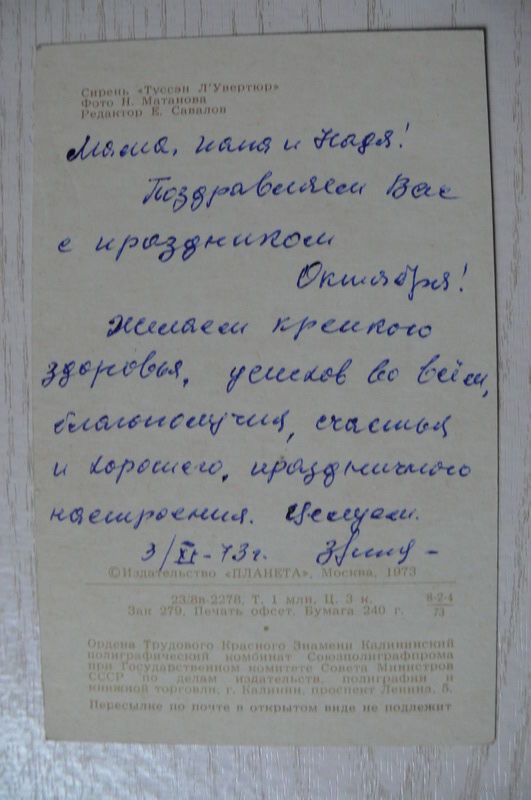 Сирень «Туссэн Л'Увертюр»
Фото Н. Матанова
Редактор Е. Савалов
Мама, папа и Надя!
Поздравляем Вас
с праздником
Октября!
Желаем крепкого
здоровья, успехов во всём,
благополучия, счастья
и хорошего, праздничного
настроения. Целуем.
3/XI-73г.
©Издательство «ПЛАНЕТА», Москва, 1973
23/8в-2278, Т. 1 млн. Ц. 3 к. 8-2-4
Зак 279. Печать офсет. Бумага 240 г. 73
Ордена Трудового Красного Знамени Калининский
полиграфический комбинат Союзполиграфпрома
при Государственном комитете Совета Министров
СССР по делам издательств, полиграфии и
книжной торговли, г. Калинин, проспект Ленина, 5.
Пересылке по почте в открытом виде не подлежит